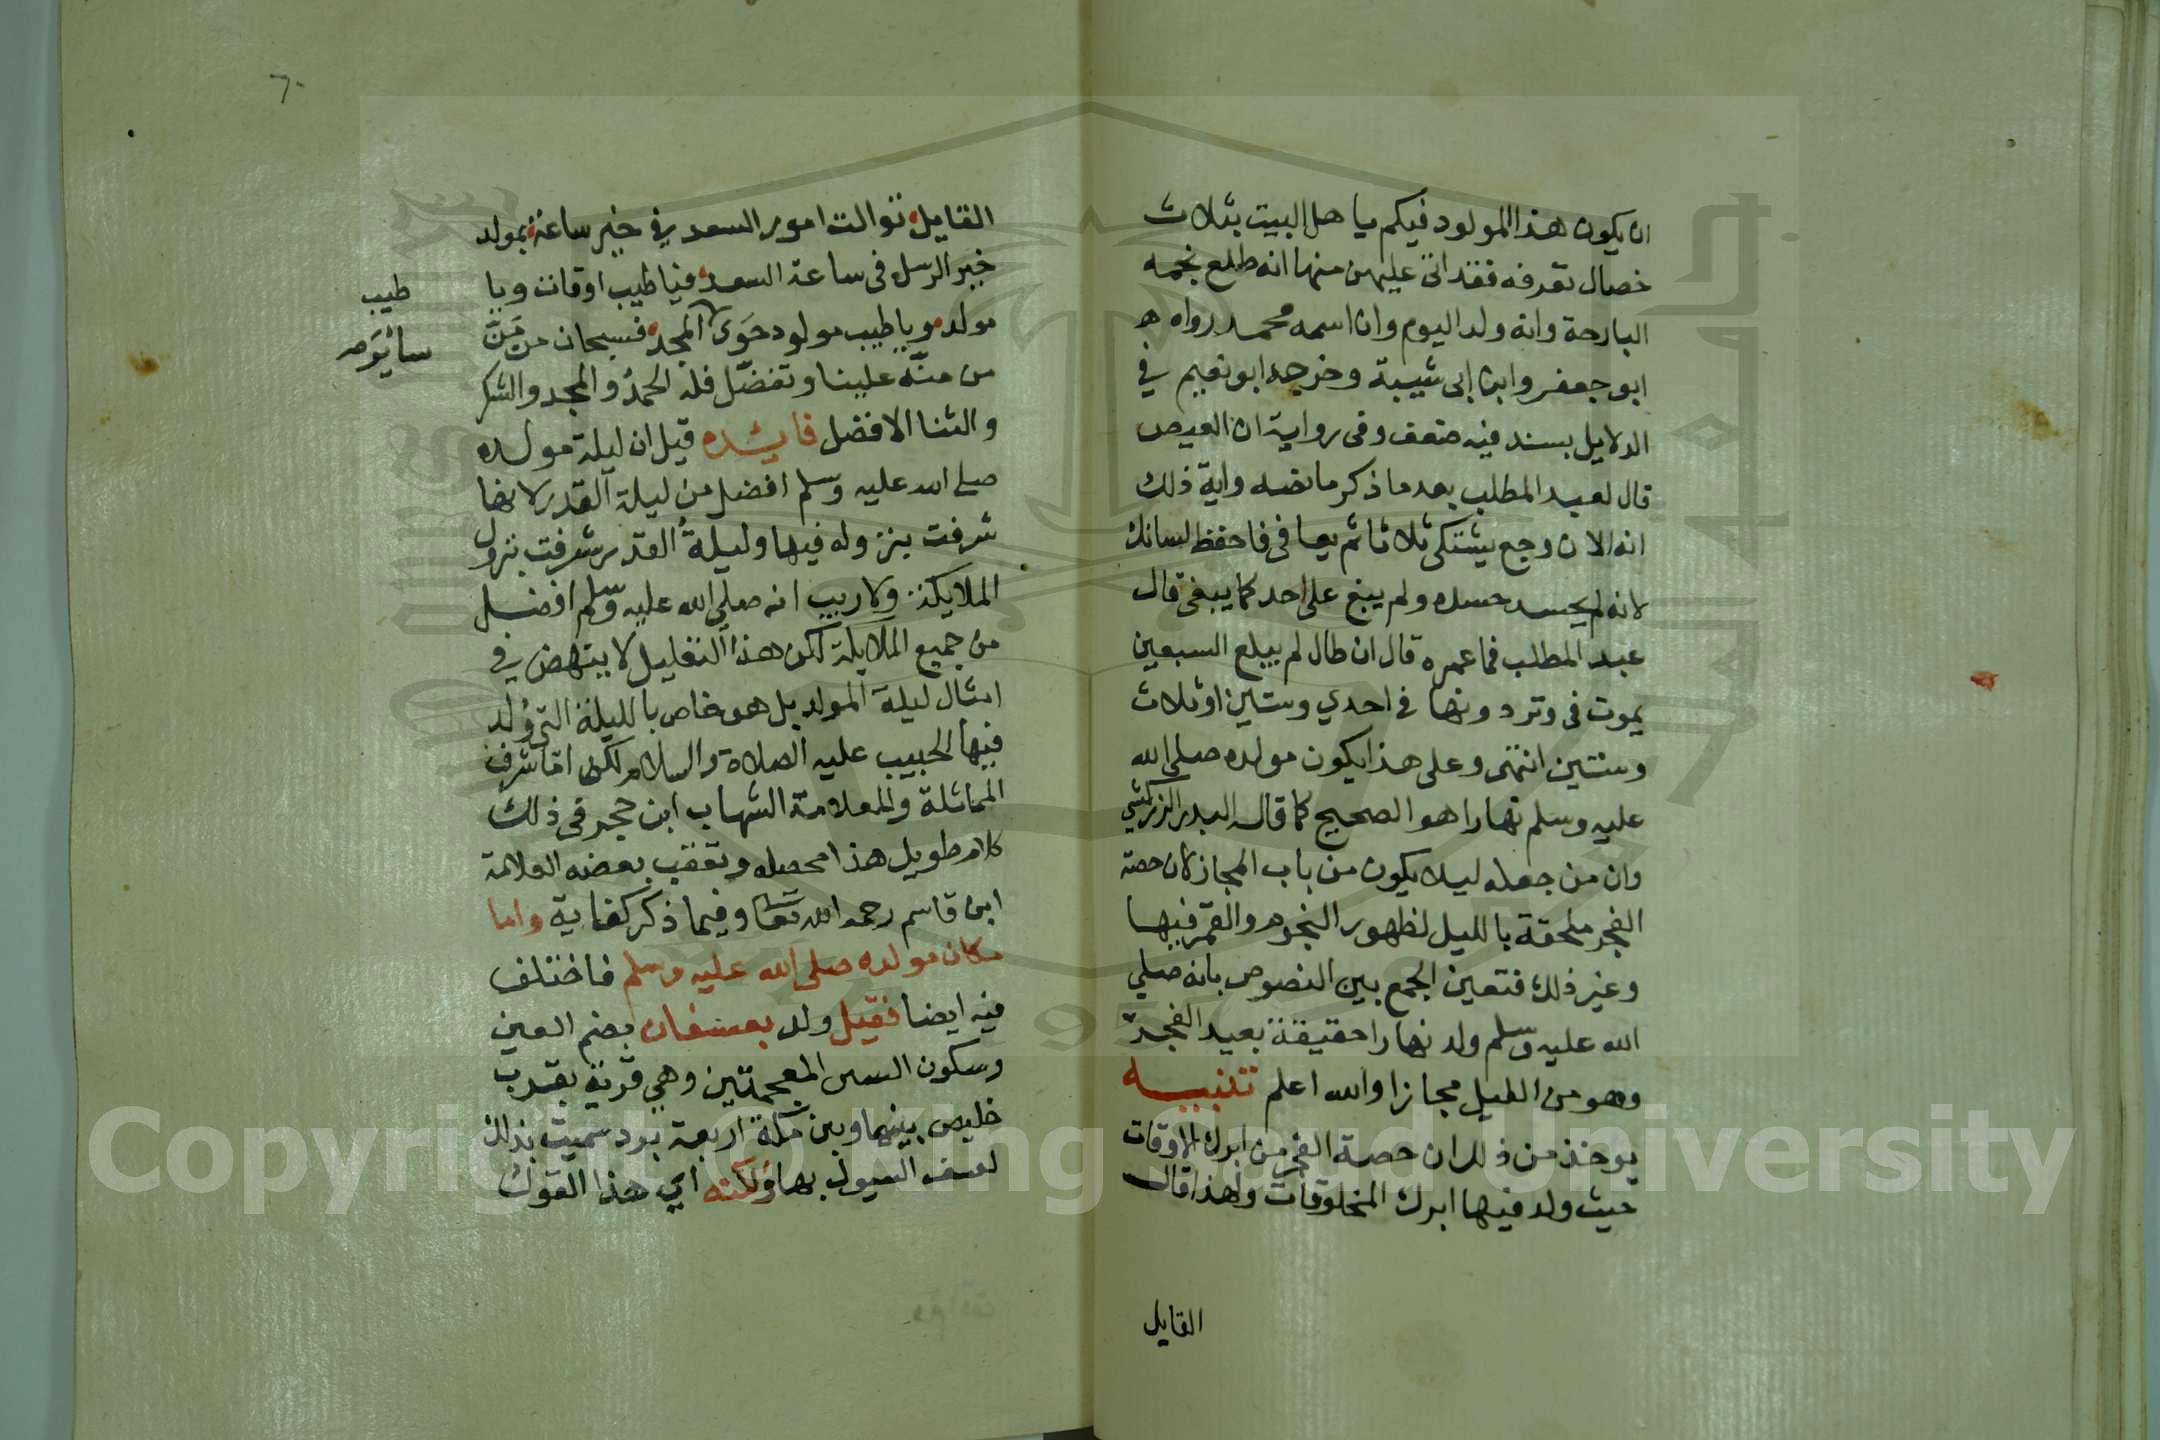 ان يكون هذا المولود فيكم يا هل البيت بثلاث
خصال تعرفه فقد اتى عليهن منها انه طلع نجمه
البارحة وانه ولد اليوم وان اسمه محمد رواه
ابو جعفر وابن ابى شيبة وخرجه ابو نعيم في
الدلايل بسند فيه ضعف وفى رواية ان العيص
قال لعبد المطلب بعد ما ذكر ما نصه واية ذلك
انه الان وجع يشتكى ثلاثا ثم يعافى فاحفظ لسانك
لانه لم يحسد حسده ولم يبغ على احد كما يبغى قال
عبد المطلب فما عمره قال ان طال لم يبلغ السبعين
يموت فى وتر دونها في احدي وستين او ثلاث
وستين انتهى وعلى هذا يكون مولده صلى الله
عليه وسلم نهارا هو الصحيح كما قال البدر الزركشي
وان من جعله ليلا يكون من باب المجاز لان حصة
الفجر ملحقة بالليل لظهور النجوم والقمر فيها
وغير ذلك فتعين الجمع بين النصوص بانه صلي
الله عليه وسلم ولد نهارا حقيقة بعيد الفجر
وهو من الليل مجازا والله اعلم تنبيه
يوخذ من ذلك ان حصة الفجر من ابرك الاوقات
حيث ولد فيها ابرك المخلوقات ولهذا قال
القايل
٦٠
القايل توالت امور السعد في خير ساعة بمولد
خير الرسل فى ساعة السعد فيا طيب اوقات ويا
مولد ويا طيب مولود حوى المجد فسبحان من مَنَّ
طيب
ساير
من منه علينا وتفضّل فله الحمدُ والمجد والشكر
والثنا الافضل فايده قيل ان ليلة مولده
صلى الله عليه وسلم افضل من ليلة القدر لانها
شرفت بنزوله فيها وليلة القدر شرفت بنزول
الملايكة ولا ريب انه صلى الله عليه وسلم افضل
من جميع الملايكة لكن هذا التعليل لا ينتهض في
امثال ليلة المولد بل هو خاص بالليلة التى وُلد
فيها الحبيب عليه الصلاة والسلام لكن اما شرف
المماثلة وللعلامة الشهاب ابن حجر فى ذلك
كلام طويل هذا محصله وتعقب بعضه العلامة
ابن قاسم رحمه الله تعا وفيما ذكر كفاية واما
مكان مولده صلى الله عليه وسلم فاختلف
فيه ايضا فقيل ولد بعسفان بضم العين
وسكون السين المعجمتين وهي قرية بقرب
خليص بينها وبين مكة اربعة برد سميت بذلك
لعسف السيول بها ولكنه اي هذا القول